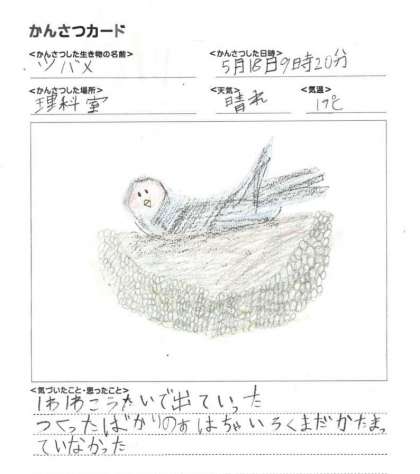 かんさつカード
<かんさつした生き物の名前> <かんさつした日時>
ツバメ 5月18日9時20分
<かんさつした場所> <天気> <気温>
理科室 晴れ 17℃
<気づいたこと・思ったこと>
1わ1わこうたいで出ていった
つくったばかりのすはちゃいろくまだかたまっ
ていなかった